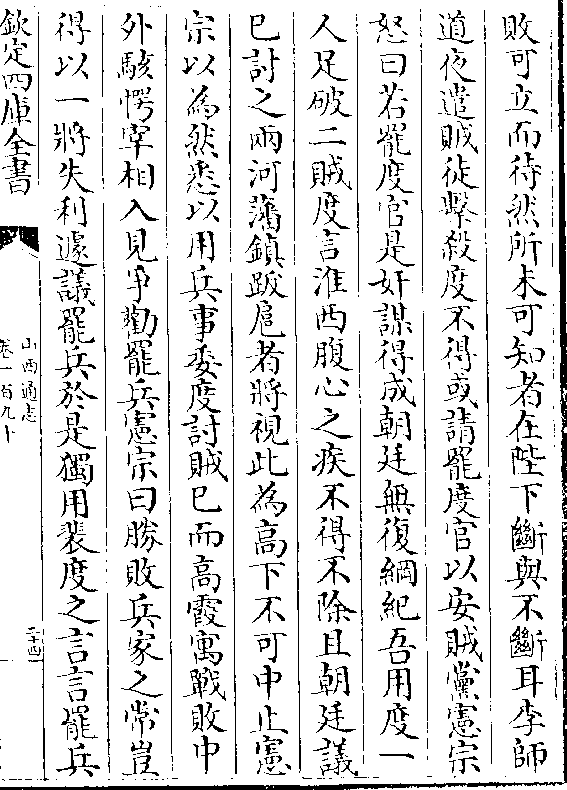 敗可立而待然所未可知者在陛下斷與不斷耳李師
道夜遣賊徒擊殺度不得或請罷度官以安賊黨憲宗
怒曰若罷度官是奸謀得成朝廷無復綱紀吾用度一
人足破二賊度言淮西腹心之疾不得不除且朝廷議
已討之兩河藩鎮跋扈者將視此為高下不可中止憲
宗以為然悉以用兵事委度討賊已而高霞寓戰敗中
外駭愕宰相入見爭勸罷兵憲宗曰勝敗兵家之常豈
得以一將失利遽議罷兵於是獨用裴度之言言罷兵
欽定四庫全書
山西通志
卷一百九十
二十四